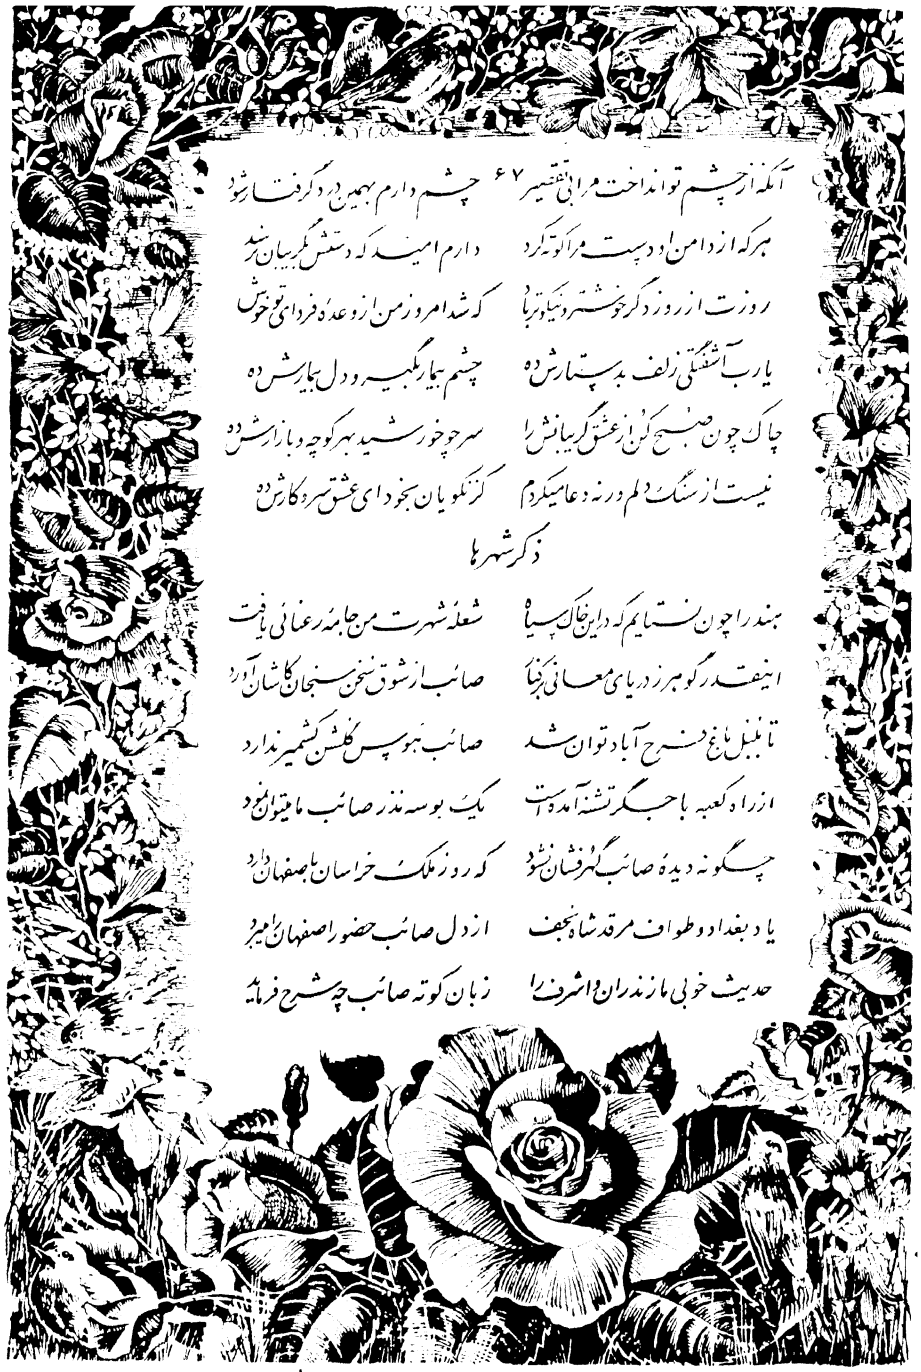 آنکه از چشم تو انداخت مرا بی تقصیر ۶۷ چشم دارم بهمین درد گرفتار شود
هر که از دامن او دست مرا کوته کرد دارم امید که دستش بگریبان نرسد
روزت از روز دگر خوشتر و نیکوتر باد که شد امروز من از وعده فردای تو خوش
یارب آشفتگی زلف بدستارش ده چشم بیمار بگیر و دل بیمارش ده
چاک چون صبح کن از عشق گریبانش را سر چو خورشید بهر کوچه و بازارش ده
نیست از سنگ دلم ورنه دعا میکردم کز نکویان بخود ای عشق سر و کارش ده
ذکر شهرها
هند را چون نستایم که در این خاک سیاه شعله شهرت من جامه رعنائی یافت
اینقدر گوهر ز دریای معانی برکنار صائب از شوق سخن سنجان کاشان آورد
تا بلبل باغ فرح آباد توان شد صائب هوس گلشن کشمیر ندارد
از راه کعبه با جگر تشنه آمده است یک بوسه نذر صائب ما میتوان نمود
چگونه دیدهٔ صائب گهرفشان نشود که رو ز ملک خراسان باصفهان دارد
یاد بغداد و طواف مرقد شاه نجف از دل صائب حضور اصفهان را میبرد
حدیث خوبی مازندران و اشرف را زبان کوته صائب چه شرح فرماید